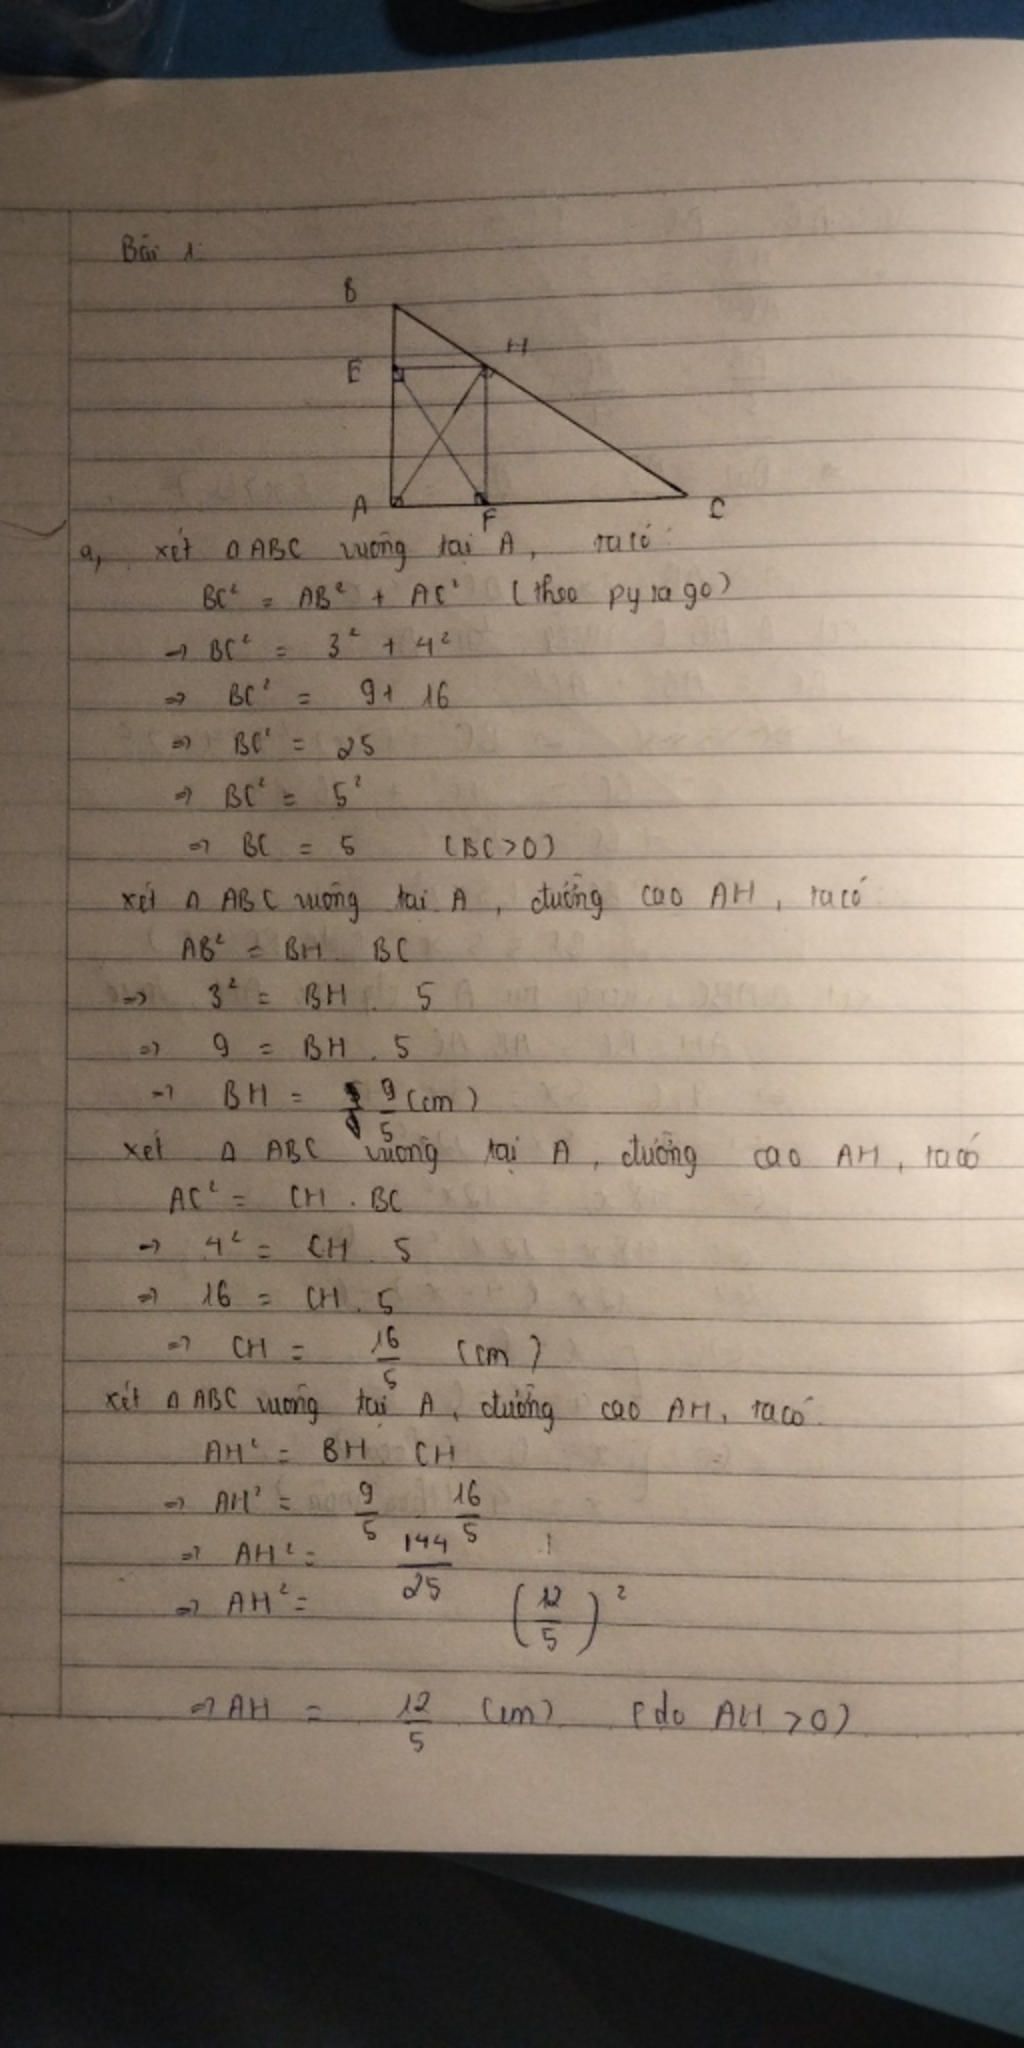 Bài 1:
B
H
E
A
F
C
a, xét △ABC vuông tại A, ta có:
BC² = AB² + AC² (theo pytago)
⇒ BC² = 3² + 4²
⇒ BC² = 9 + 16
⇒ BC² = 25
⇒ BC² = 5²
⇒ BC = 5 (BC>0)
xét △ ABC vuông tại A, đường cao AH, ta có
AB² = BH . BC
⇒ 3² = BH . 5
⇒ 9 = BH . 5
⇒ BH = 9/5 (cm)
xét △ ABC vuông tại A, đường cao AH, ta có
AC² = CH . BC
⇒ 4² = CH . 5
⇒ 16 = CH . 5
⇒ CH = 16/5 (cm)
xét △ ABC vuông tại A, đường cao AH, ta có
AH² = BH . CH
⇒ AH² = 9/5 . 16/5
⇒ AH² = 144/25
⇒ AH² = (12/5)²
⇒ AH = 12/5 (cm) (do AH >0)